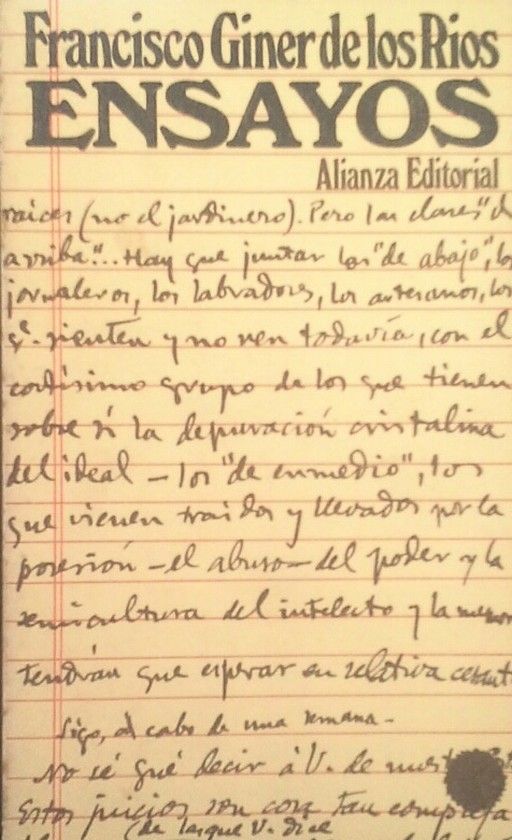 Francisco Giner de los Rios
ENSAYOS
Alianza Editorial
raices (no el jardinero). Pero las clases "de
arriba"... Hay que juntar los "de abajo", los
jornaleros, los labradores, los artesanos, los
qe. sienten y no ven todavía, con el
cortísimo grupo de los que tienen
sobre sí la depuración cristalina
del ideal – los "de enmedio", los
que vienen traidos y llevados por la
posesión – el abuso – del poder y la
semicultura del intelecto y la
tendrán que esperar en relativa
Sigo, al cabo de una semana –
No sé qué decir á V. de
Estos juicios son cosa tan
(de las que V. dice